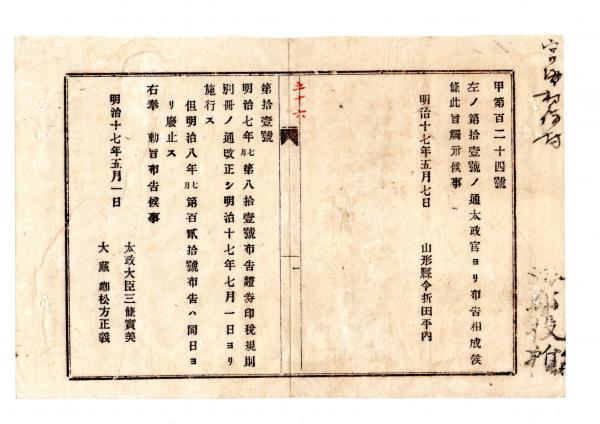 甲第百二十四號
左ノ第拾壹號ノ通太政官ヨリ布告相成候
條此旨觸示候事
明治十七年五月七日
山形縣令折田平內
五十六
一
第拾壹號
明治七年七月第八拾壹號布告證券印稅規則
別冊ノ通改正シ明治十七年七月一日ヨリ
施行ス
但明治八年七月第百貳拾號布告ハ同日ヨ
リ廢止ス
右奉 勅旨布告候事
明治十七年五月一日
太政大臣三條實美
大藏卿松方正義